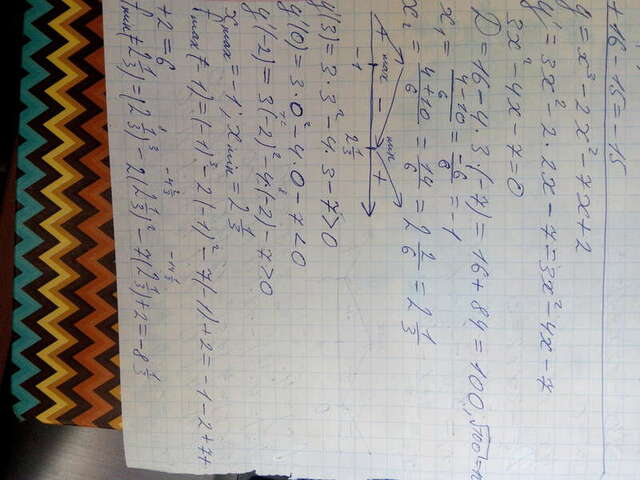 + 16 - 15 = -15
y = x³ - 2x² - 7x + 2
y' = 3x² - 2·2x - 7 = 3x² - 4x - 7
3x² - 4x - 7 = 0
D = 16 - 4·3·(-7) = 16 + 84 = 100, √100 = 10
x₁ = (4-10)/6 = -6/6 = -1
x₂ = (4+10)/6 = 14/6 = 2 2/6 = 2 1/3
+ max - min +
-1 2 1/3
y'(3) = 3·3² - 4·3 - 7 > 0
y'(0) = 3·0² - 4·0 - 7 < 0
y'(-2) = 3(-2)² - 4(-2) - 7 > 0
x max = -1; x min = 2 1/3
f max (-1) = (-1)³ - 2(-1)² - 7(-1) + 2 = -1 - 2 + 7 +
+ 2 = 6
f min (2 1/3) = (2 1/3)³ - 2(2 1/3)² - 7(2 1/3) + 2 = -8 1/3